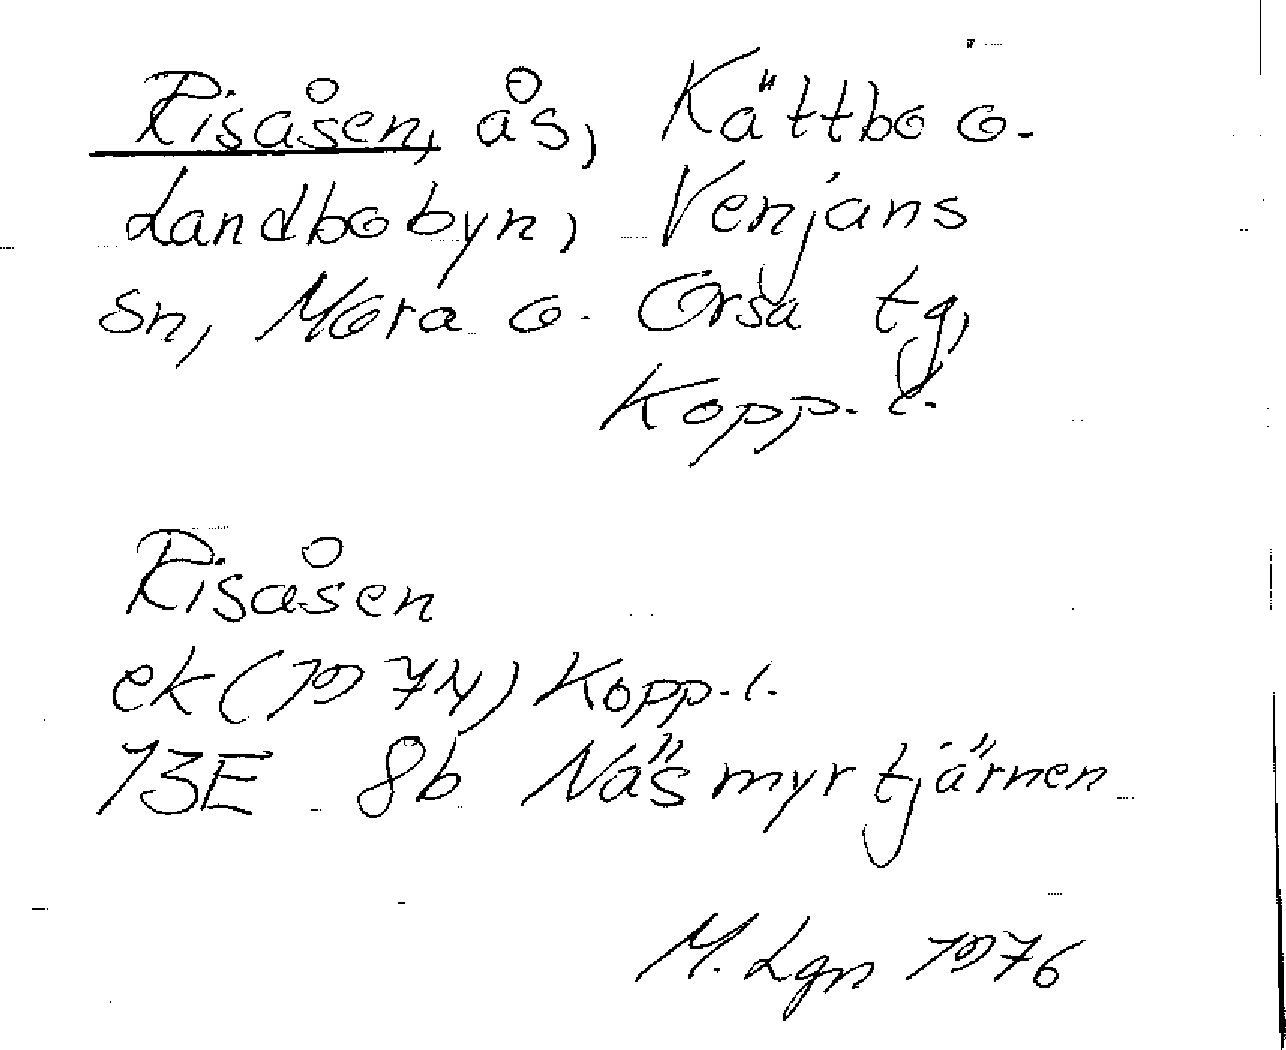 Risåsen, ås, Kättbo o.
Landbobyn, Venjans
sn, Mora o. Orsa tg,
Kopp. l.
Risåsen
ek (1974) Kopp. l.
13E 8b Näsmyrtjärnen
M. Lgn 1976